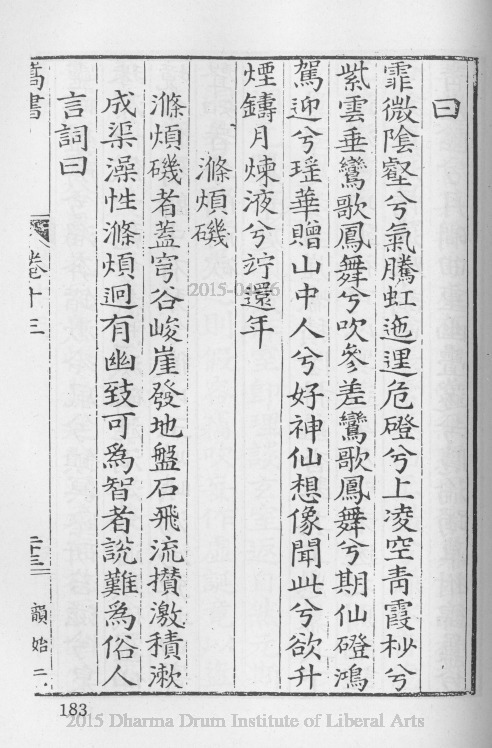 曰
霏微陰壑兮氣騰虹迤邐危磴兮上凌空青霞杪兮
紫雲垂鸞歌鳳舞兮吹參差鸞歌鳳舞兮期仙磴鴻
駕迎兮瑤華贈山中人兮好神仙想像聞此兮欲升
煙鑄月煉液兮竚還年
滌煩磯
滌煩磯者蓋穹谷峻崖發地盤石飛流攢激積漱
成渠澡性滌煩迥有幽致可為智者說難為俗人
言詞曰
嵩書
卷十三
二十三
韻始二
183
2015-04-06
2015 Dharma Drum Institute of Liberal Arts